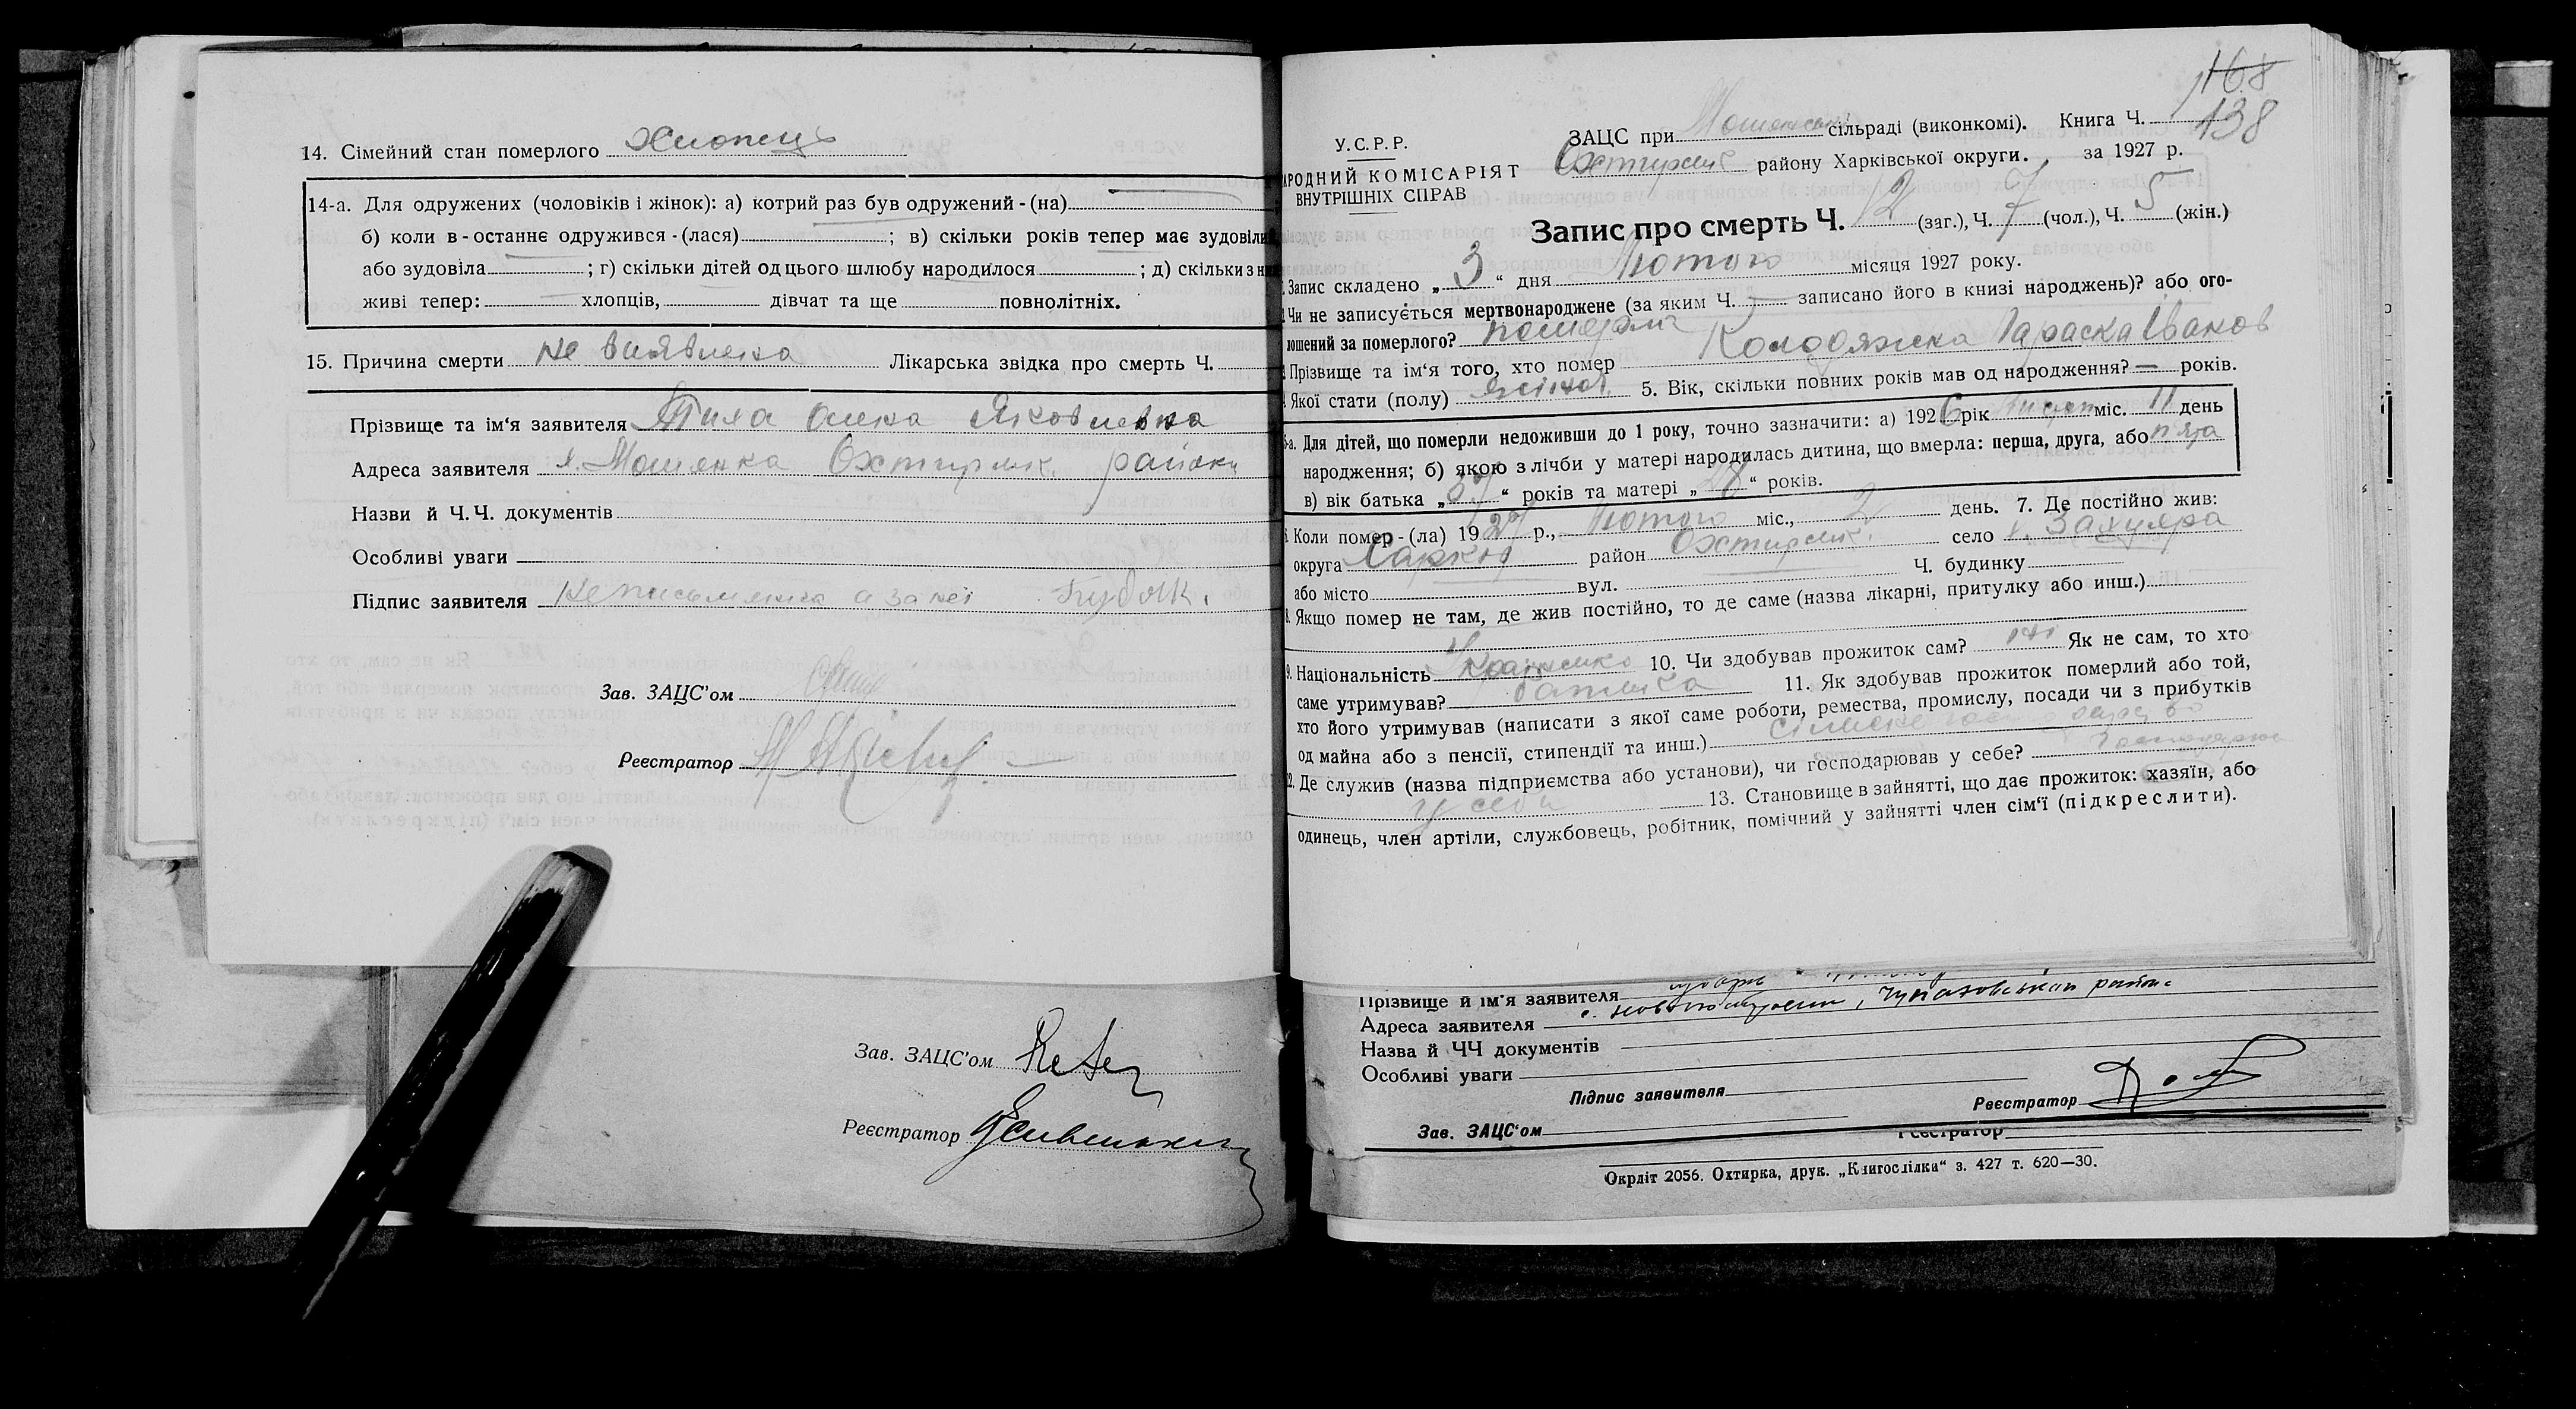 14. Сімейний стан померлого Хлопець
14-а. Для одружених (чоловіків і жінок): а) котрий раз був одружений-(на)
б) коли в-останнє одружився-(лася) ; в) скільки років тепер має зудовіли
або зудовіла ; г) скільки дітей од цього шлюбу народилося ; д) скільки з н
живі тепер: хлопців, дівчат та ще повнолітніх.
15. Причина смерти не виявлена Лікарська звідка про смерть Ч.
Прізвище та ім‘я заявителя Тиха Яковлевна
Адреса заявителя х. Мошенка Охтирськ. району
Назви й Ч.Ч. документів
Особливі уваги
Підпис заявителя неписьменна а за неї
Зав. ЗАЦС’ом
Реєстратор
Зав. ЗАЦС’ом
Реєстратор
168
138
У.С.Р.Р.
АРОДНИЙ КОМІСАРІЯТ
ВНУТРІШНІХ СПРАВ
ЗАЦС при Мошенській сільраді (виконкомі). Книга Ч.
Охтирськ району Харківської округи. за 1927 р.
Запис про смерть Ч. 12 (заг.), Ч. 7 (чол.), Ч. 5 (жін.)
Запис складено „3“ дня Лютого місяця 1927 року.
Чи не записується мертвонароджене (за яким Ч. — записано його в книзі народжень)? або ого-
лошений за померлого? померла
Прізвище та ім‘я того, хто помер Колодяжна Параска Іванов
Якої стати (полу) жіноч. 5. Вік, скільки повних років мав од народження? — років.
5-а. Для дітей, що померли недоживши до 1 року, точно зазначити: а) 1926 рік міс. 11 день
народження; б) якою з лічби у матері народилась дитина, що вмерла: перша, друга, або п'ята
в) вік батька „37“ років та матері „28“ років.
Коли помер-(ла) 1927 р., Лютого міс., 2 день. 7. Де постійно жив:
округа Харків район Охтирськ. село х.
або місто вул. Ч. будинку
8. Якщо помер не там, де жив постійно, то де саме (назва лікарні, притулку або инш.)
9. Національність Українська 10. Чи здобував прожиток сам? ні Як не сам, то хто
саме утримував? батька 11. Як здобував прожиток померлий або той,
хто його утримував (написати з якої саме роботи, ремества, промислу, посади чи з прибутків
од майна або з пенсії, стипендії та инш.) сільське господарство
12. Де служив (назва підприємства або установи), чи господарював у себе? господарює
у себе 13. Становище в зайнятті, що дає прожиток: хазяїн, або
одинець, член артіли, службовець, робітник, помічний у зайнятті член сім‘ї (підкреслити).
Прізвище й ім’я заявителя
Адреса заявителя с. району
Назва й ЧЧ документів
Особливі уваги
Підпис заявителя
Реєстратор
Зав. ЗАЦС‘ом
Реєстратор
Окрліт 2056. Охтирка, друк. „Книгоспілка“ з. 427 т. 620—30.